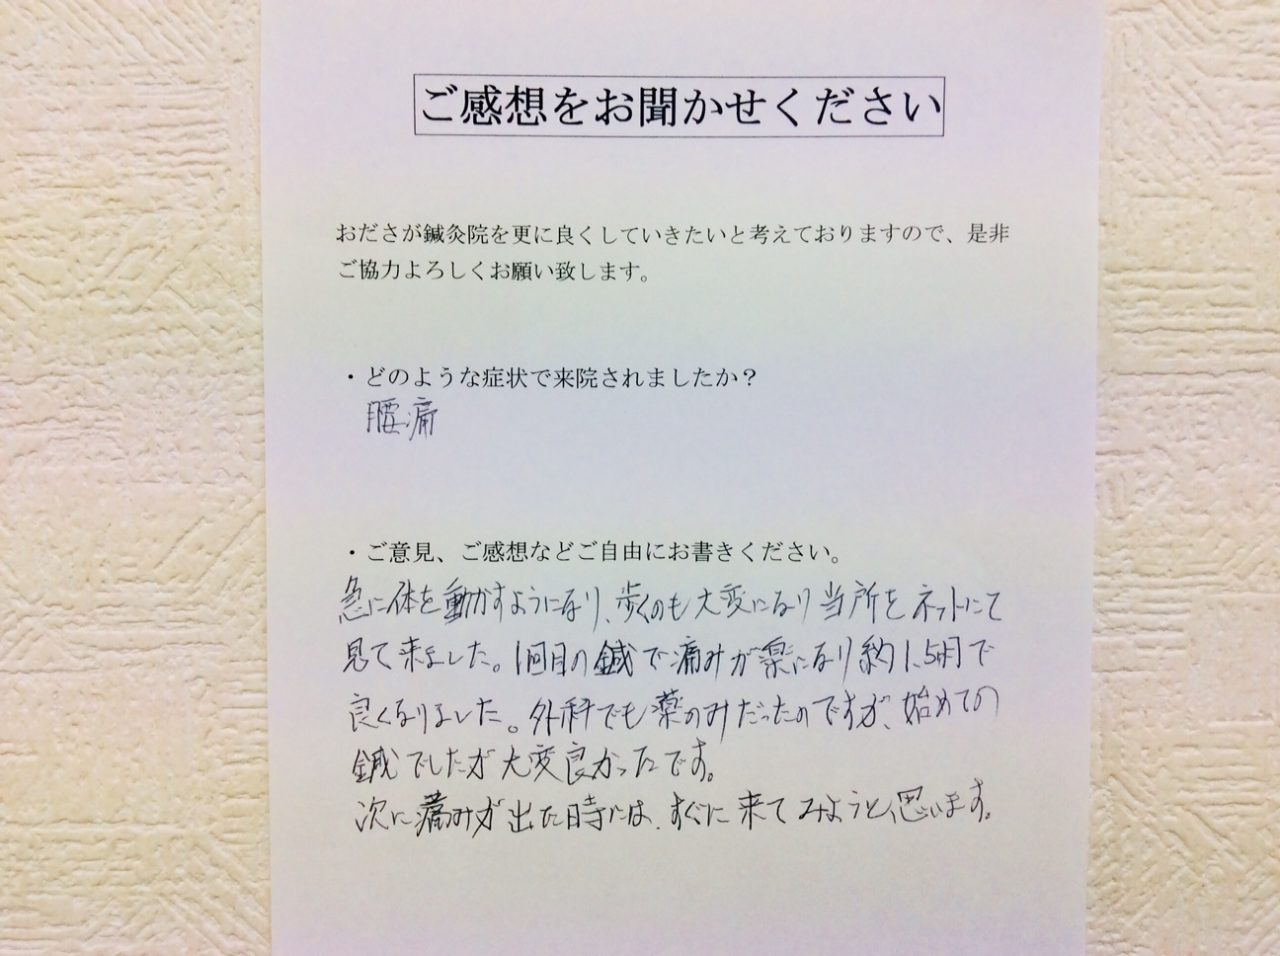 ご感想をお聞かせください
おださが鍼灸院を更に良くしていきたいと考えておりますので、是非
ご協力よろしくお願い致します。
・どのような症状で来院されましたか？
腰痛
・ご意見、ご感想などご自由にお書きください。
急に体を動かすようになり、歩くのも大変になり当所をネットにて
見て来ました。1回目の鍼で痛みが楽になり約1.5ヶ月で
良くなりました。外科でも薬のみだったのですが、始めての
鍼でしたが大変良かったです。
次に痛みが出た時には、すぐに来てみようと思います。